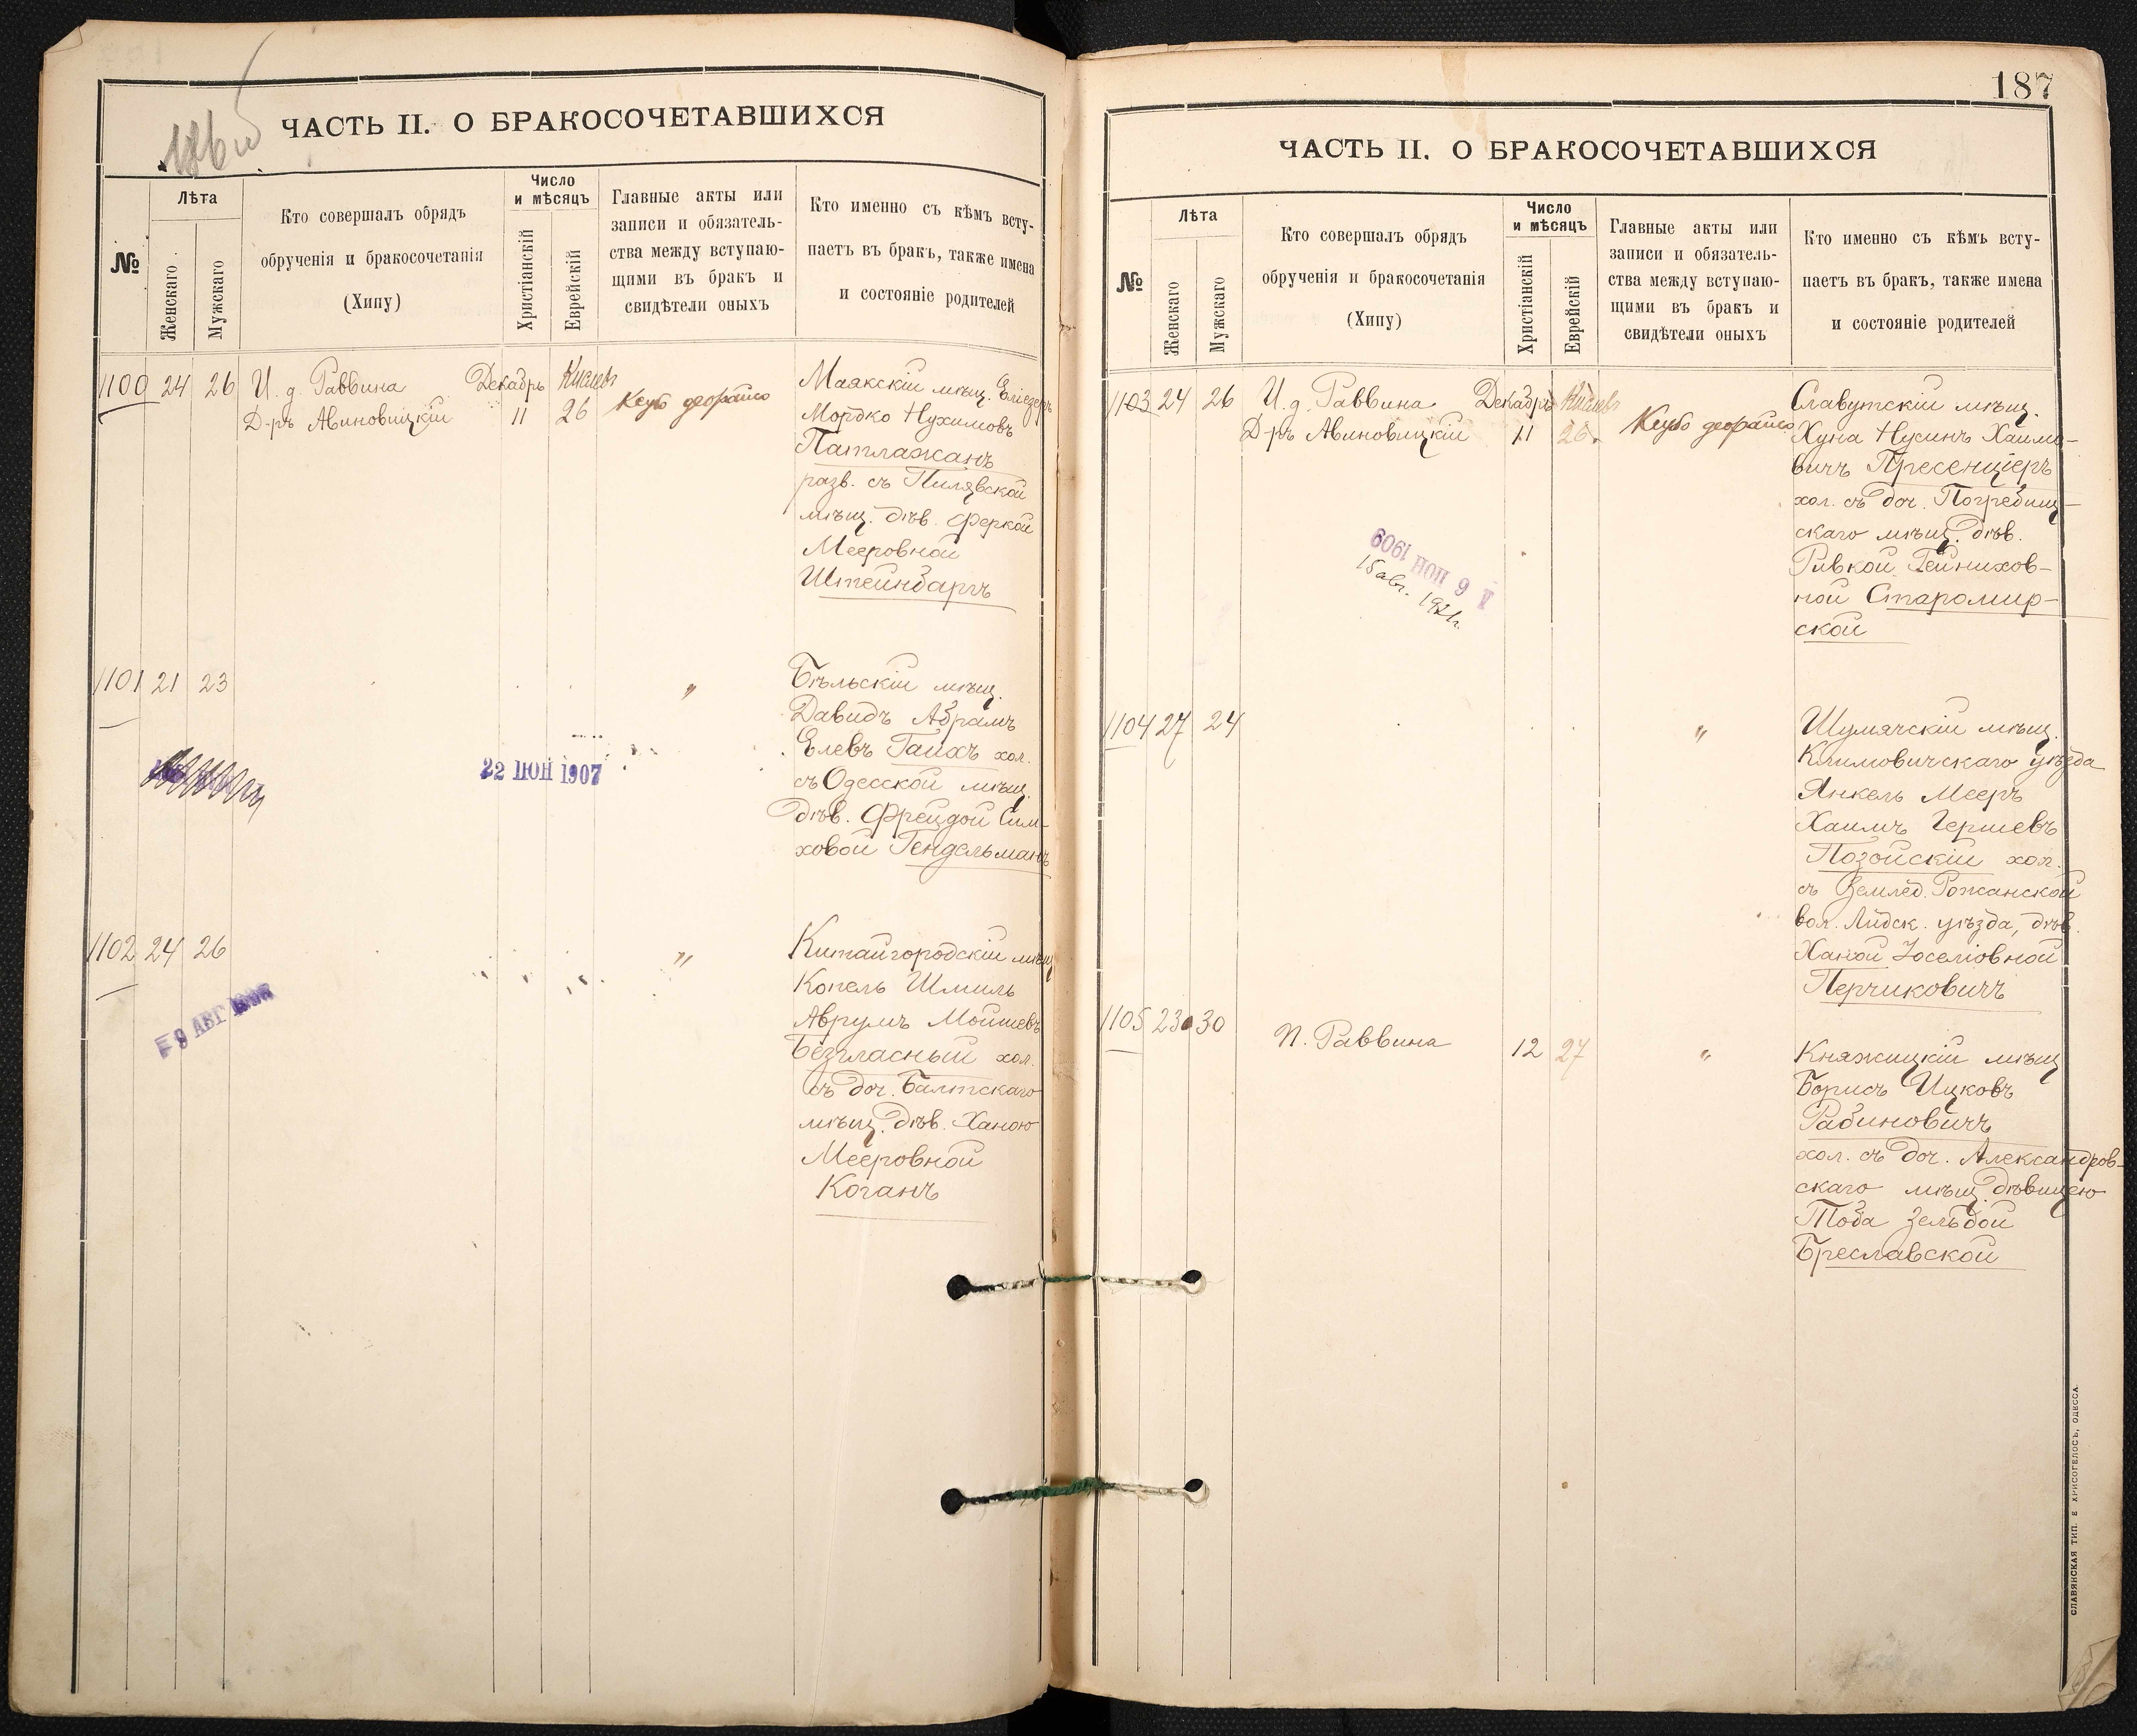 186 об
ЧАСТЬ II. О БРАКОСОЧЕТАВШИХСЯ
№
Лѣта
Женскаго
Мужскаго
Кто совершалъ обрядъ
обрученія и бракосочетанія
(Хипу)
Число
и мѣсяцъ
Христіанскій
Еврейскій
Главные акты или
записи и обязатель-
ства между вступаю-
щими въ бракъ и
свидѣтели оныхъ
Кто именно съ кѣмъ всту-
паетъ въ бракъ, также имена
и состояніе родителей
1100 24 26 И. д. Раввина Декабрь Кислевъ
Д-ръ Авиновицкій 11 26
Маякскій мѣщ. Еліезеръ
Мордко Нухимовъ
Патлажанъ
разв. съ Пилявской
мѣщ. дѣв. Феркой
Мееровной
Штейнбаргъ
1101 21 23 "
Бѣльскій мѣщ.
Давидъ Абрамъ
Елевъ Гаихъ хол.
съ Одесской мѣщ.
дѣв. Фрейдой Сим-
ховой Гендельманъ
22 ІЮН 1907
1102 24 26 "
Китайгородскій мѣщ
Копель Шмиль
Аврумъ Мойшевъ
Безгласный хол.
съ доч. Балтскаго
мѣщ. дѣв. Ханою
Мееровной
Коганъ
9 АВГ
187
ЧАСТЬ II. О БРАКОСОЧЕТАВШИХСЯ
№
Лѣта
Женскаго
Мужскаго
Кто совершалъ обрядъ
обрученія и бракосочетанія
(Хипу)
Число
и мѣсяцъ
Христіанскій
Еврейскій
Главные акты или
записи и обязатель-
ства между вступаю-
щими въ бракъ и
свидѣтели оныхъ
Кто именно съ кѣмъ всту-
паетъ въ бракъ, также имена
и состояніе родителей
1103 24 26 И. д. Раввина Декабрь Кислевъ
Д-ръ Авиновицкій 11 26
Славутскій мѣщ.
Хуна Нусинъ Хаимо-
вичъ Пресенціеръ
хол. съ доч. Погребищ-
скаго мѣщ. дѣв.
Ривкой Гейнихов-
ной Старомир-
ской
6 ІЮН 1909
15 авг. 1921г.
1104 27 24 "
Шумячскій мѣщ.
Климовичскаго уѣзда
Янкель Мееръ
Хаимъ Гершевъ
Позойскій хол.
съ Землед. Рожанской
вол. Лидск. уѣзда, дѣв.
Ханой Іоселіовной
Перчиковичъ
1105 23 30 П. Раввина 12 27 "
Княжицкій мѣщ
Борисъ Ицковъ
Рабиновичъ
хол. съ доч. Александров-
скаго мѣщ. дѣвицею
Тоба Зельдой
Бреславской
СЛАВЯНСКАЯ ТИП. Е ХРИСОГЕЛОСЪ, ОДЕССА.